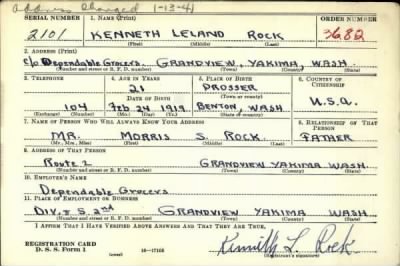 Address Changed 1-13-41
SERIAL NUMBER 1. NAME (Print) ORDER NUMBER
2101 KENNETH LELAND ROCK 3682
(First) (Middle) (Last)
2. ADDRESS (Print)
c/o Dependable Grocers. GRANDVIEW, YAKIMA, WASH.
(Number and street or R. F. D. number) (Town) (County) (State)
3. TELEPHONE 4. AGE IN YEARS 5. PLACE OF BIRTH 6. COUNTRY OF CITIZENSHIP
21 PROSSER
DATE OF BIRTH (Town or county)
104 Feb 24 1919 BENTON, WASH U.S.A.
(Exchange) (Number) (Mo.) (Day) (Yr.) (State or country)
7. NAME OF PERSON WHO WILL ALWAYS KNOW YOUR ADDRESS 8. RELATIONSHIP OF THAT PERSON
MR. MORRIS S. ROCK. FATHER
(Mr., Mrs., Miss) (First) (Middle) (Last)
9. ADDRESS OF THAT PERSON
Route 2 GRANDVIEW YAKIMA WASH.
(Number and street or R. F. D. number) (Town) (County) (State)
10. EMPLOYER'S NAME
Dependable Grocers
11. PLACE OF EMPLOYMENT OR BUSINESS
DIV. & S. 2nd GRANDVIEW YAKIMA WASH
(Number and street or R. F. D. number) (Town) (County) (State)
I AFFIRM THAT I HAVE VERIFIED ABOVE ANSWERS AND THAT THEY ARE TRUE.
REGISTRATION CARD
D. S. S. Form 1 (over) Kenneth L. Rock
(Registrant's signature)